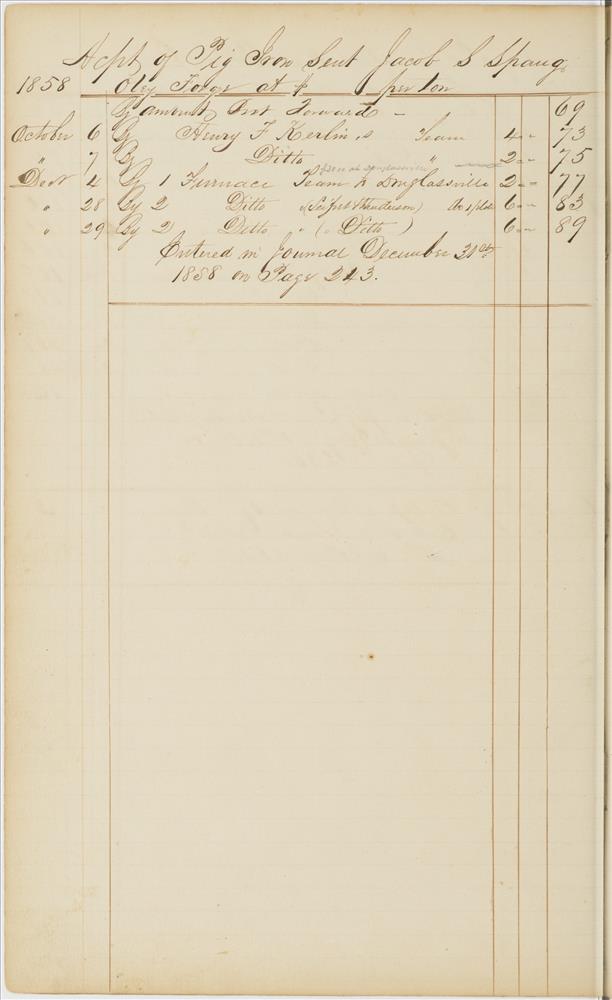 Acpt of Pig Iron Sent Jacob S Spang
1858 Oley Forge at $ per ton
By amount Brot Forward - 69
October 6 By Henry F Kerlin,s Team 4 - 73
" 7 By Ditto " 2 - 75
4 By 1 Furnace Team to Douglassville 2 - 77
" 28 By 2 Ditto " 6 - 83
" 29 By 2 Ditto " ( Ditto ) 6 - 89
Entered in Journal December 31st
1858 on Page 243.